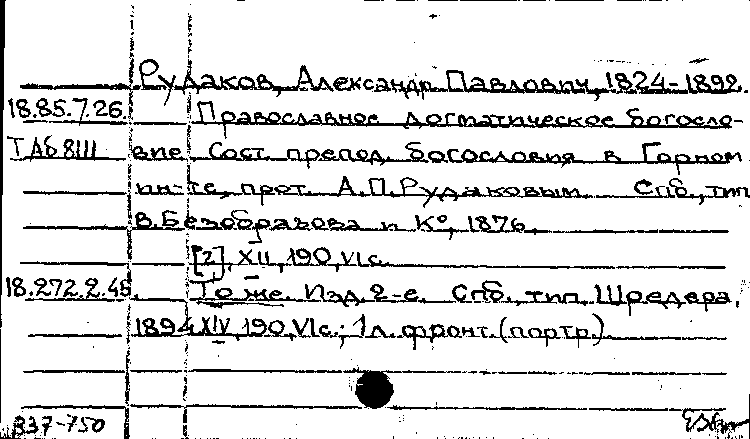 Рудаков, Александр Павлович, 1824-1892.
18.85.7.26. Православное догматическое богосло-
вие Сост. препод. богословия в Горном
ин-те, прот. А.П.Рудаковым. Спб., тип.
В.Безобразова и К°, 1876.
[2], XII, 190, VI с.
18.272.2.45. То же. Изд. 2-е. Спб., тип. Шредера,
1894 XIV, 190, VI с.; 1 л. фронт. (портр.)
337-750